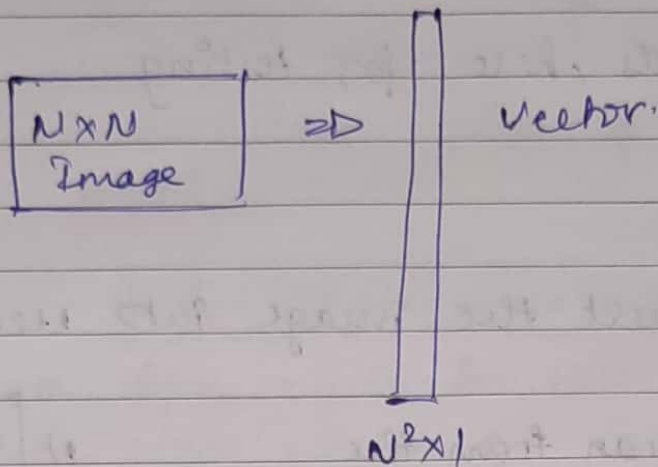 NXN
Image
⇒
Vector.
N²×1